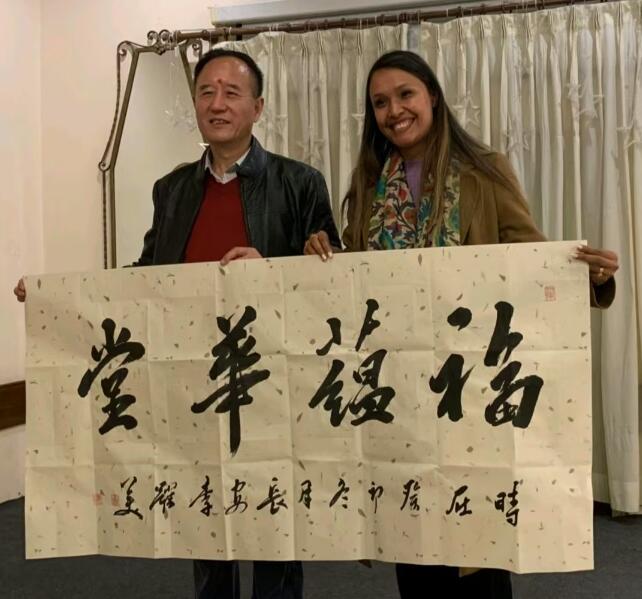 福蕴華堂
時在癸卯冬月長安李耀美